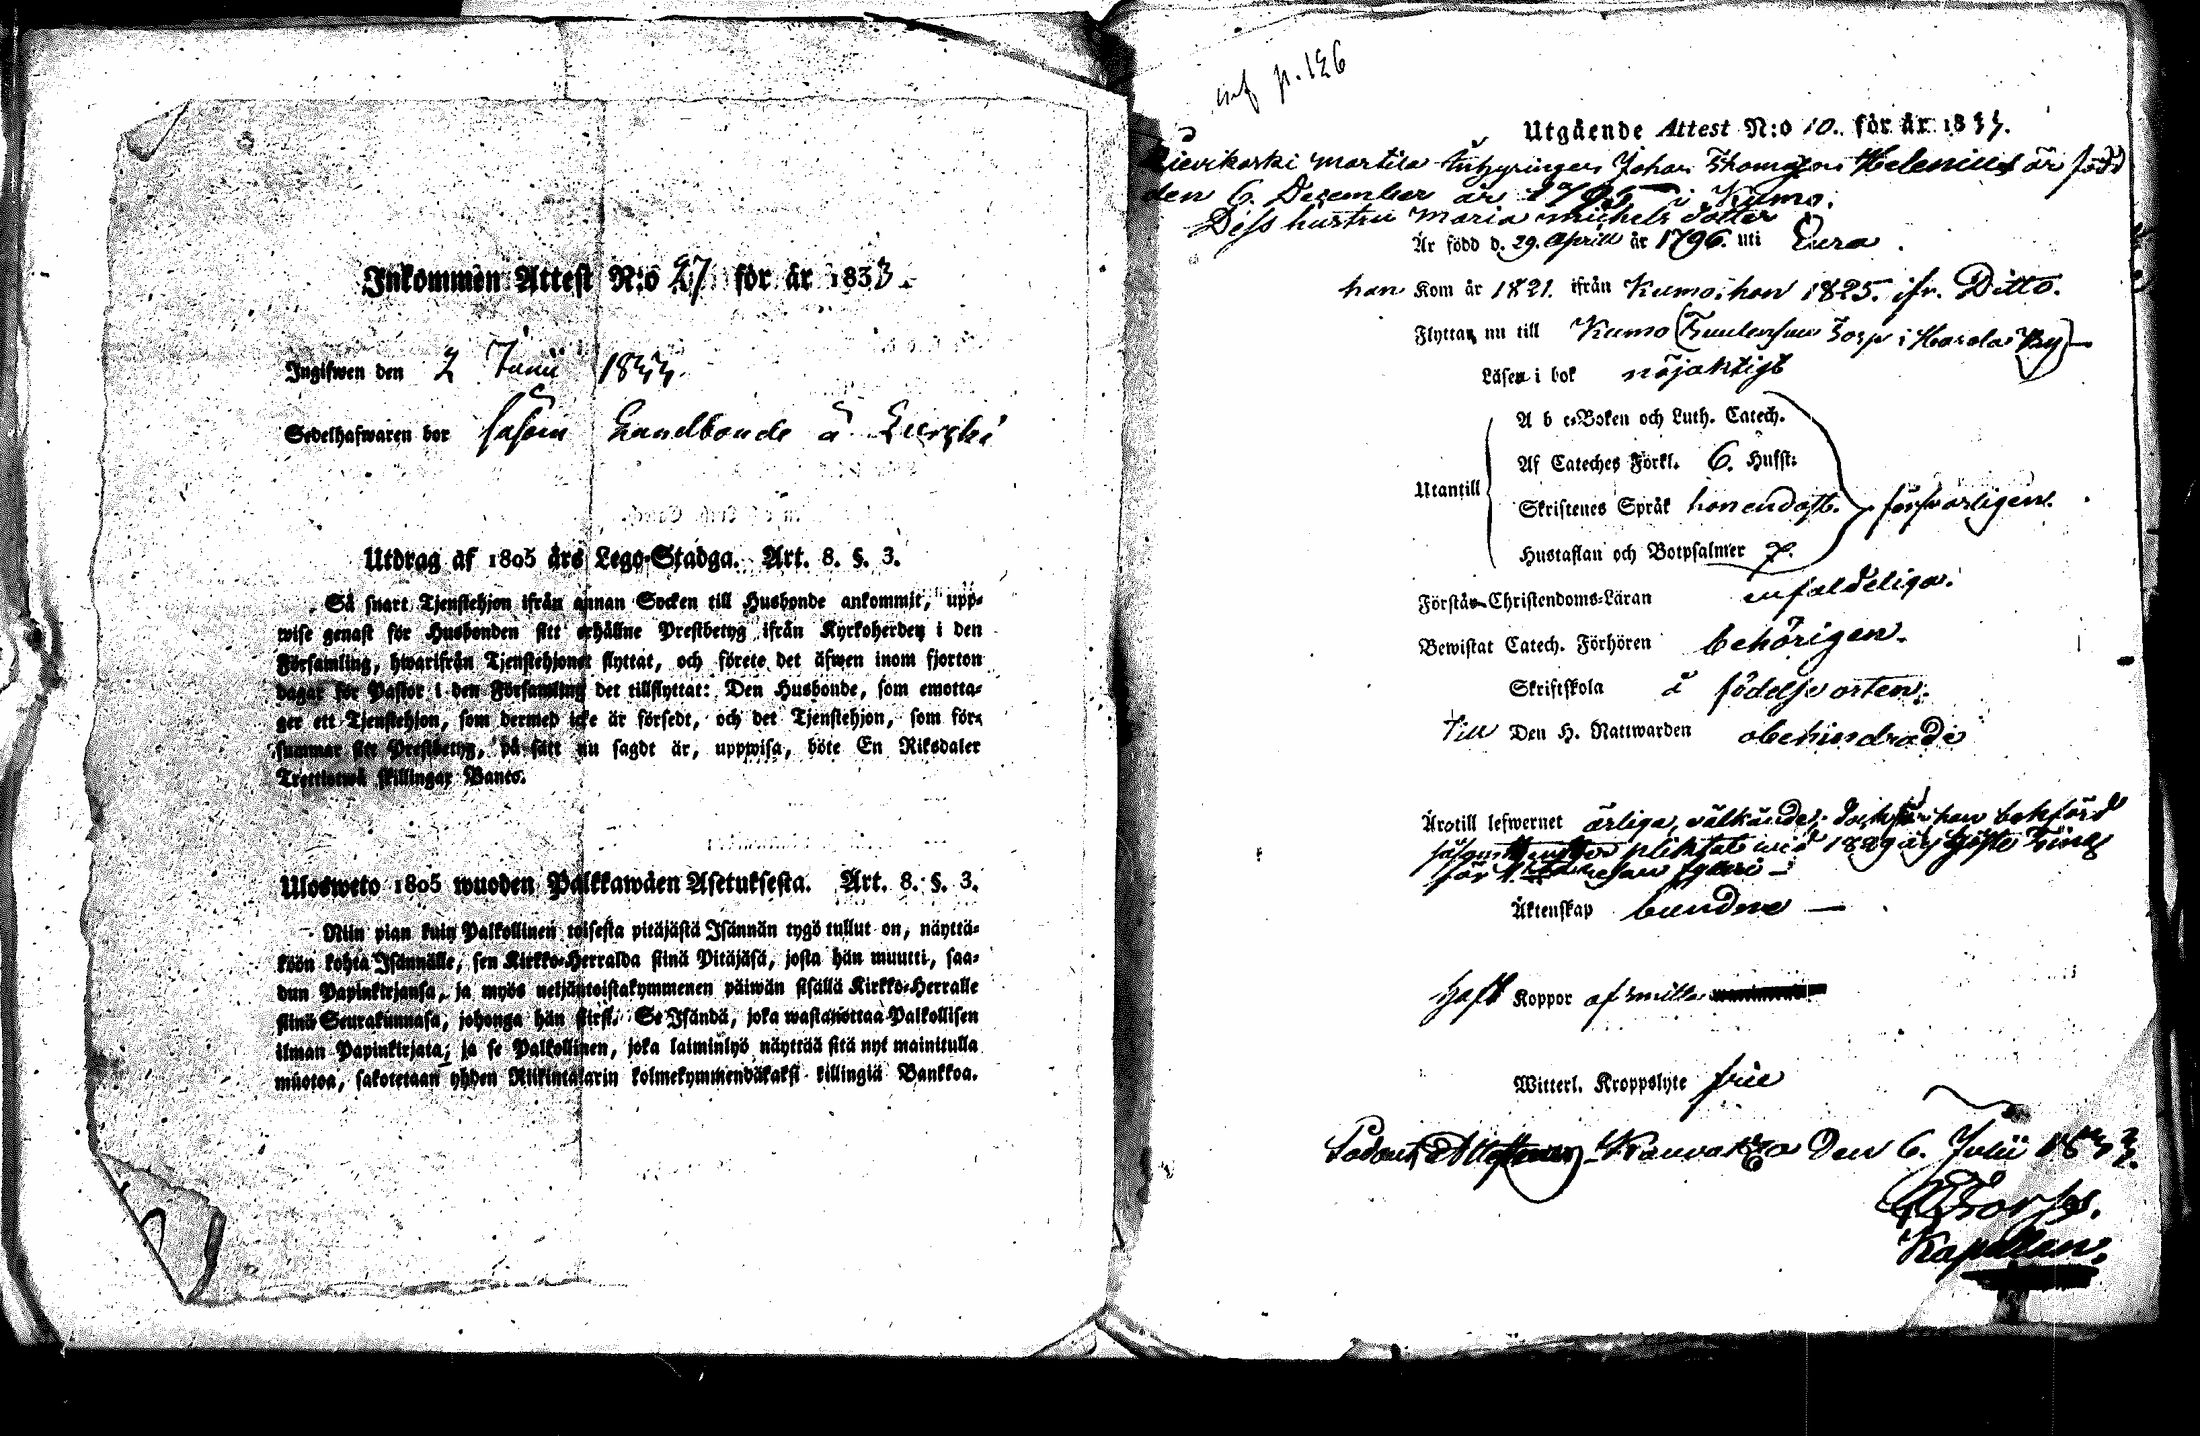 Inkommen Attest N:o 27 för år 1833.
Ingifwen den 2 Junii 1833.
Sedelhafwaren bor såsom Landbonde å
Utdrag af 1805 års Lego-Stadga. Art. 8. §. 3.
Så snart Tjenstehjon ifrån annan Socken till Husbonde ankommit, upp-
wise genast för Husbonden sitt erhållne Prestbetyg ifrån Kyrkoherden i den
Församling, hwarifrån Tjenstehjonet flyttat, och förete det äfwen inom fjorton
dagar för Pastor i den Församling det tillflyttat: Den Husbonde, som emotta-
ger ett Tjenstehjon, som dermed icke är försedt, och det Tjenstehjon, som för-
summar sitt Prestbetyg, på sätt nu sagdt är, uppwisa, böte En Riksdaler
Trettiotwå skillingar Banco.
Ulosweto 1805 wuoden Palkkawäen Asetuksesta. Art. 8. §. 3.
Niin pian kuin Palkollinen toisesta pitäjästä Isännän tygö tullut on, näyttä-
köön kohta Isännälle, sen Kirkko-Herralda siinä Pitäjäsä, josta hän muutti, saa-
dun Papinkirjansa, ja myös neljäntoistakymmenen päiwän sisällä Kirkko-Herralle
siinä Seurakunnasa, johonga hän siirsi. Se Isändä, joka wastanottaa Palkollisen
ilman Papinkirjata, ja se Palkollinen, joka laiminlyö näyttää sitä nyt mainitulla
muotoa, sakotetaan yhden Riikintalarin kolmekymmendäkaksi killingiä Bankkoa.
inf p. 126
Utgående Attest N:o 10. för år 1833.
Martila Inhysingen Johan Thomasson Helenius är född
den 6. December år i Kumo.
Dess hustru Maria Michels dotter
Är född d. 29. Aprill år 1796. uti Eura.
han Kom år 1821. ifrån Kumo, hon 1825. ifr. Ditto.
Flyttar nu till Kumo Torp i Harola By)
Läsen i bok nöjaktigt
A b c-Boken och Luth. Catech.
Af Cateches Förkl. 6. Hufst:
Utantill
Skriftenes Språk hon endast. försvarligen.
Hustaflan och Botpsalmer 7.
Förstår Christendoms-Läran enfaldeliga.
Bewistat Catech. Förhören behörigen.
Skriftskola å födelse orten.
Till Den H. Nattwarden obehindrade
Äro till lefwernet ärliga, välkände, dock han
pliktat wid 1829 Ting
för
Äktenskap bundne —
Haft Koppor af Smitta
Witterl. Kroppslyte frie
Kauvatsa Den 6. Julii 1833.
Kapellan.